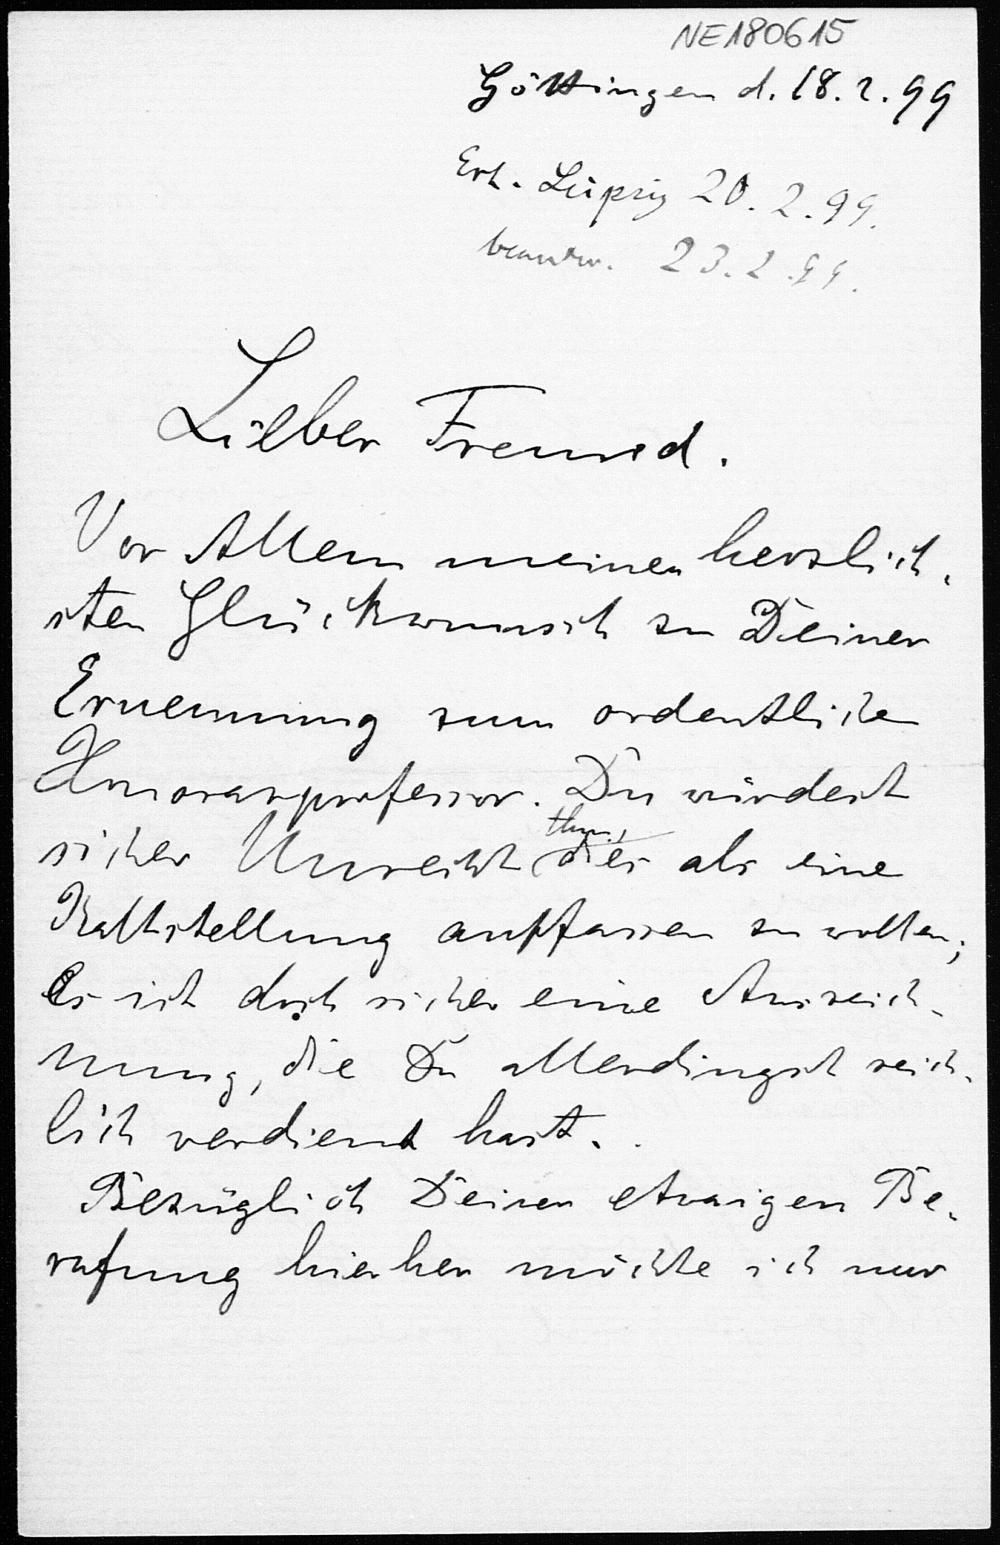 NE180615
Göttingen d. 18. 2. 99
Erh. Leipzig 20. 2. 99.
beantw. 23. 2. 99.
Lieber Freund.
Vor Allem meinen herzlich-
sten Glückwunsch zu Deiner
Ernennung zum ordentlichen
Honorarprofessor. Du würdest
sicher Unrecht thun, dies als eine
Kaltstellung auffassen zu wollen;
Es ist doch sicher eine Auszeich-
nung, die Du allerdingst reich-
lich verdient hast.
Bezüglich Deiner etwaigen Be-
rufung hierher möchte ich nur